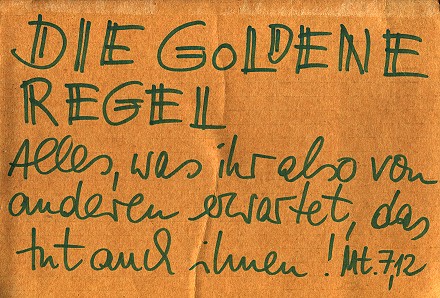 DIE GOLDENE
REGEL
Alles, was ihr also von
anderen erwartet, das
tut auch ihnen! Mt. 7,12